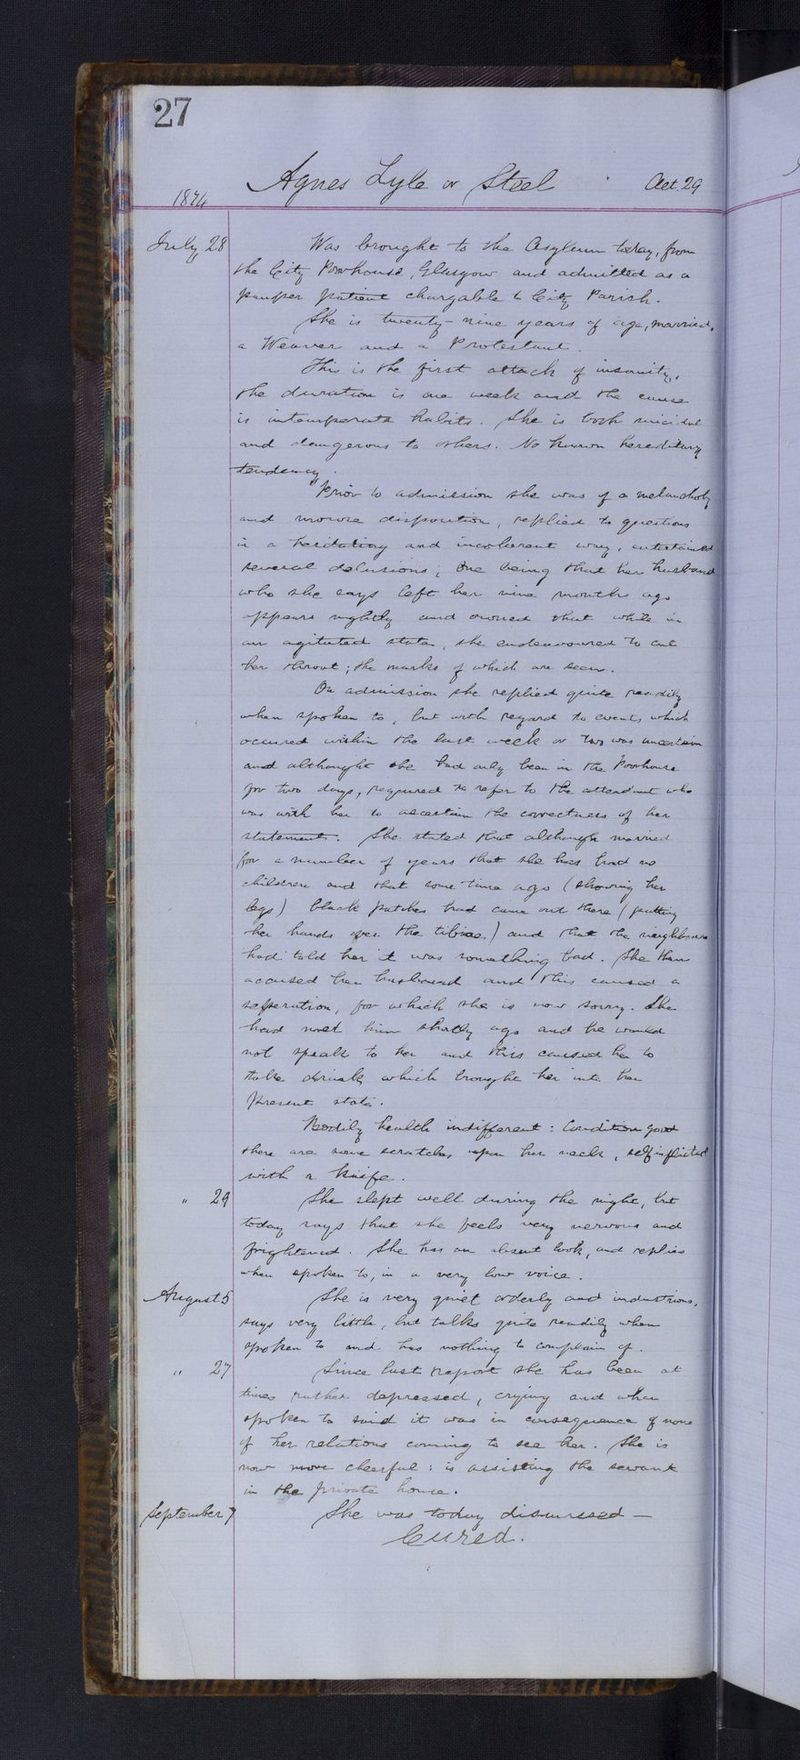 27
Agnes Lyle or Steel Aet. 29
1874
July 28 Was brought to the Asylum today, from
the City Poorhouse, Glasgow and admitted as a
pauper patient chargable to City Parish.
She is twenty-nine years of age, married,
a Weaver and a Protestant.
This is the first attack of insanity,
the duration is one week and the cause
is intemperate habits. She is both suicidal
and dangerous to others. No known hereditary
tendency.
Prior to admission she was of a melancholy
and morose disposition, replied to questions
in a hesitating and incoherent way, entertained
several delusions; One being that her husband
who she says left her nine months ago
appears nightly and owned that while in
an agitated state, she endeavoured to cut
her throat; the marks of which are seen.
On admission she replied quite readily
when spoken to, but with regard to events which
occured within the last week or two was uncertain
and althought she had only been in the Poorhouse
for two days, required to refer to the attendant who
was with her to ascertain the correctness of her
statements. She stated that although married
for a number of years that she has had no
children and that some time ago (showing her
legs) black patches had come out there (putting
her hands over the tibiae) and that the neighbours
had told her it was something bad. She then
accused her husband and this caused a
seperation, for which she is now sorry. She
had met him shortly ago and he would
not speak to her and this caused her to
take drink which brought her into her
present state.
Bodily health indifferent: Condition good
there are some scratches upon her neck, self inflicted
with a knife.
" 29 She slept well during the night, but
today says that she feels very nervous and
frightened. She has an absent look, and replies
when spoken to, in a very low voice.
August 5 She is very quiet orderly and industrious,
says very little, but talks quite readily when
spoken to and has nothing to complain of.
" 27 Since last report she has been at
times rather depressed, crying and when
spoken to said it was in consequence of none
of her relations coming to see her. She is
now more cheerful: is assisting the servant
in the private house.
September 7 She was today dismissed —
Cured.